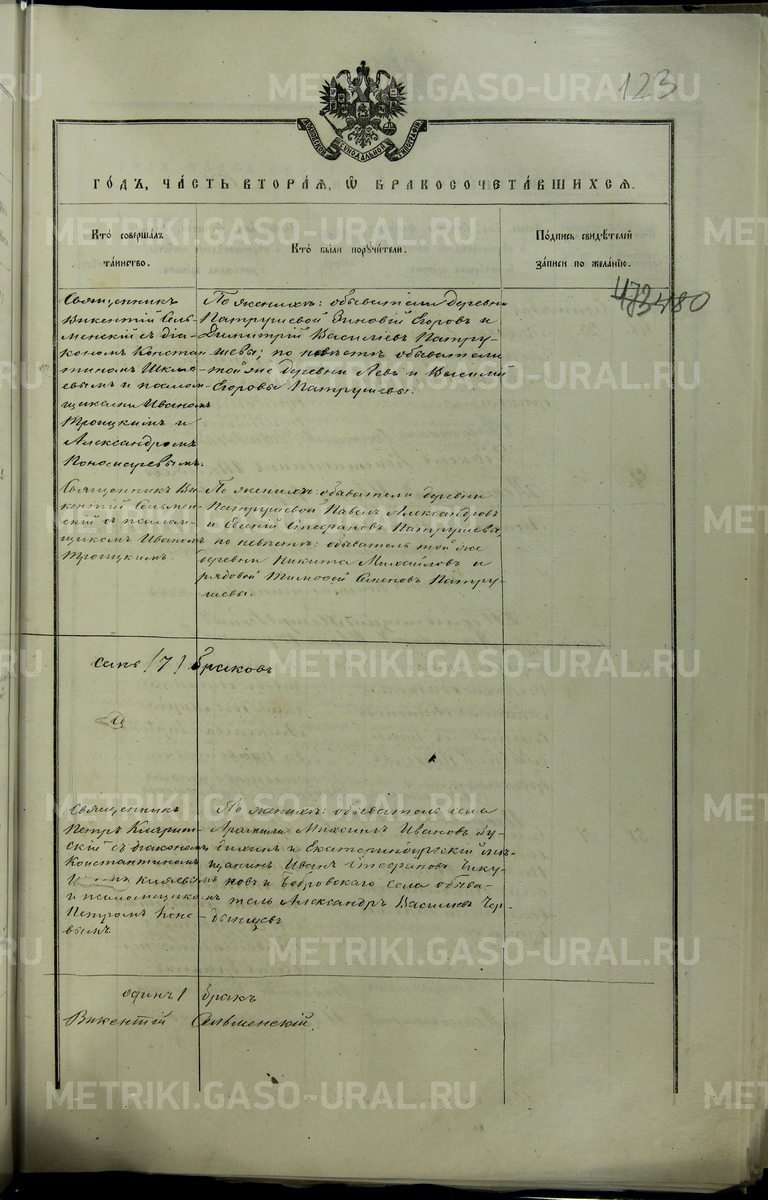 123
МОСКОВСКОЙ СѴНОДАЛЬНОЙ ТИПОГРАФІИ
ГО́ДЪ, ЧА́СТЬ ВТОРА́Я, Ѡ҆ БРАКОСОЧЕТА́ВШИХСЯ.
Кто̀ соверша́лъ
та́инство.
Кто̀ бы́ли порꙋчи́тели.
По́дпись свидѣ́телей
за́писи по жела́нїю.
480
Священникъ
Викентій Сель-
менскій съ діа-
кономъ Констан
тиномъ
евымъ и псалом-
щиками Иваномъ
Троицкимъ и
Александромъ
Пономаревымъ.
По женихѣ: обыватели деревни
Патрушевой Зиновій Егоровъ и
Димитрій Васильевъ Патру-
шевы; по невѣстѣ обыватели
той же деревни Левъ и Василій
Егоровы Патрушевы.
Священникъ Ви-
кентій Сельмен-
скій съ псалом-
щикомъ Иваномъ
Троицкимъ.
По женихѣ: обыватели деревни
Патрушевой Павелъ Александровъ
и Стефановъ Патрушевы,
по невѣстѣ: обыватель той же
деревни Никита Михайловъ и
рядовой Тимофей Семеновъ Патру-
шевы.
семь /7/ браковъ
Священникъ
Петръ
скій съ діакономъ
Константиномъ
и псаломщико
Петромъ Коне-
вымъ
По женихѣ: обыватель села
Арамили Михаилъ Ивановъ
и Екатеринбургскій мѣ-
щанинъ Иванъ Стефановъ Чику-
новъ и Бобровскаго села обыва-
тель Александръ Васильевъ Чер-
дынцевъ
одинъ 1 бракъ
Викентій Сельменскій.
METRIKI.GASO-URAL.RU